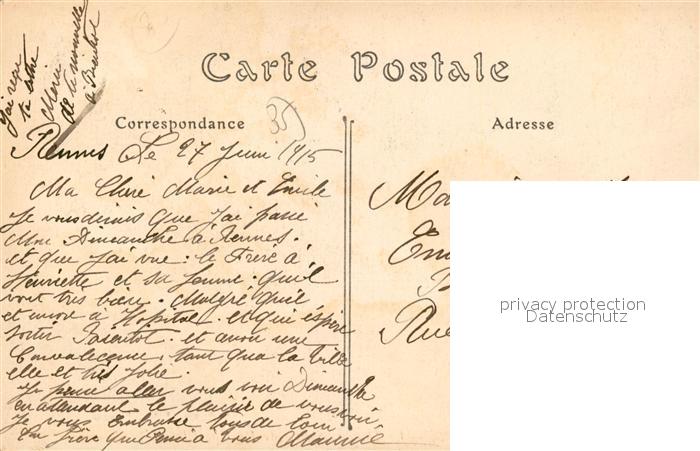 J'ai reçu
ta lettre
Marie
de ta nouvelle
à
Carte Postale
35
Correspondance
Adresse
Rennes Le 27 Juin 1915
Ma Chere Marie et Emile
Je vous dirais que J'ai passé
Mon Dimanche à Rennes.
et que J'ai vue le Frere à
Henriette et sa femme qu'il
vont très bien. Malgré qu'il
et encor à Hopital. et qui espère
sortir Bientot. et avoir une
Convalecence. tant qua la Ville
elle et très Jolie.
Je pense aller vous voir Dimanche
en attendant le plaisir de vous voir
Je vous Embrasse tous de loin
Ton frère que Pense à vous Maurice
Ma
Em
Rue
privacy protection
Datenschutz